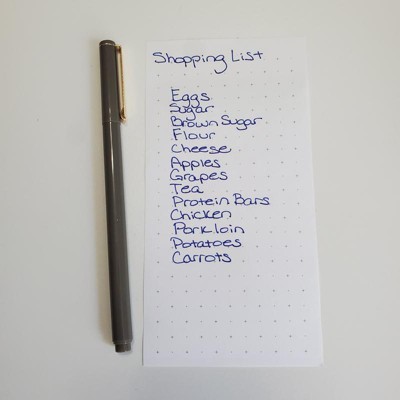 Shopping List
Eggs
Sugar
Brown Sugar
Flour
Cheese
Apples
Grapes
Tea
Protein Bars
Chicken
Pork loin
Potatoes
Carrots